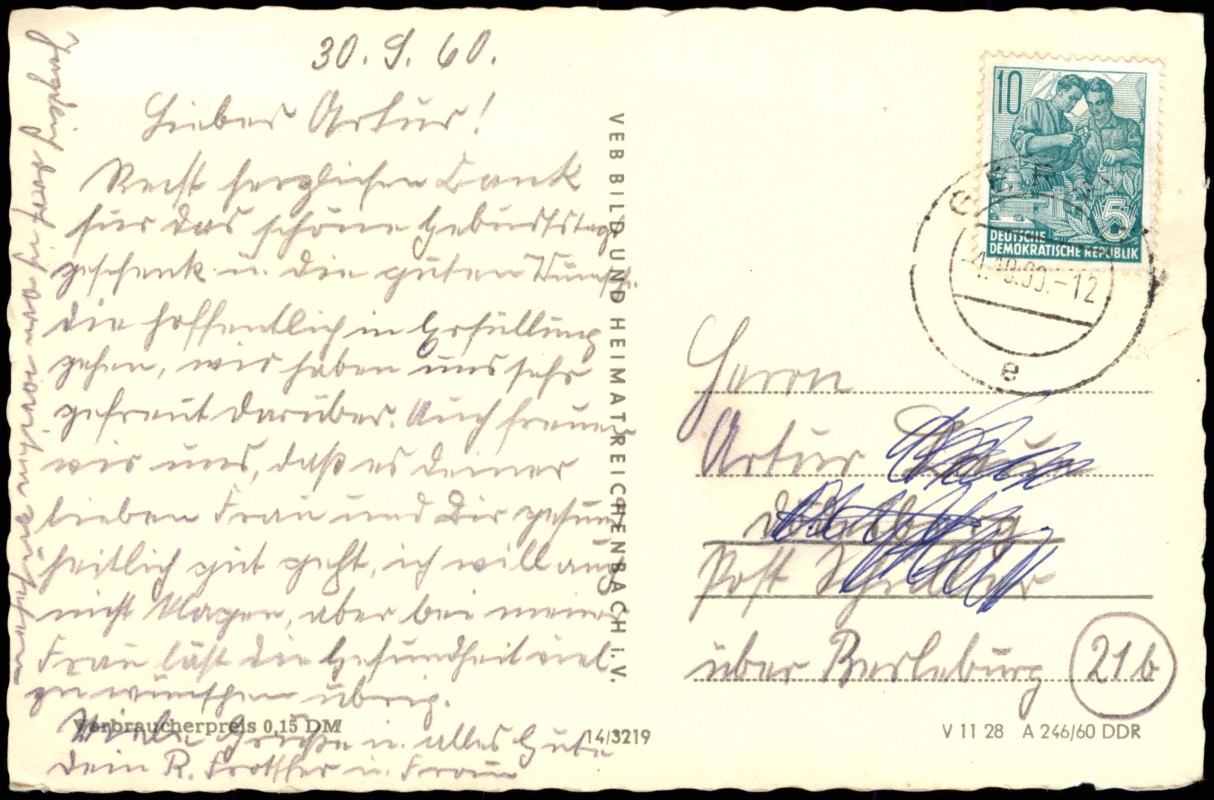 30. 9. 60.
Lieber Artur!
Recht herzlichen Dank
für das schöne Geburtstags
geschenk u. die guten Wünsche
die hoffentlich in Erfüllung
gehen, wir haben uns sehr
gefreut darüber. Auch freuen
wir uns, daß es deiner
lieben Frau und Dir gesund
heitlich gut geht, ich will auch
nicht klagen, aber bei meiner
Frau läst die Gesundheit viel
zu wünschen übrig.
Viele Grüße u. alles Gute
Dein R. u. Frau
Verbraucherpreis 0,15 DM
VEB BILD UND HEIMAT REICHENBACH i. V.
14/3219
10
5
DEUTSCHE
DEMOKRATISCHE REPUBLIK
-1.10.60.-12
e
Herrn
Artur
Post
über Berleburg
21b
V 11 28 A 246/60 DDR